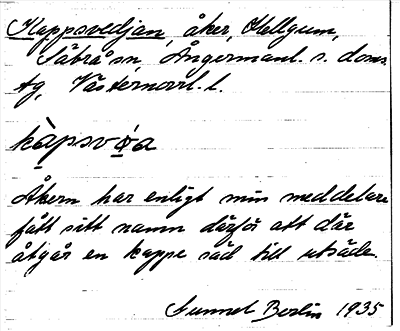 Kappsvedjan, åker, Hellgum,
Säbrå sn, Ångermanl. s. doms.
tg, Västernorrl. l.
kàpsvø̀a
Åkern har enligt min meddelare
fått sitt namn därför att där
åtgår en kappe säd till utsäde.
Gunnel Berlin 1935